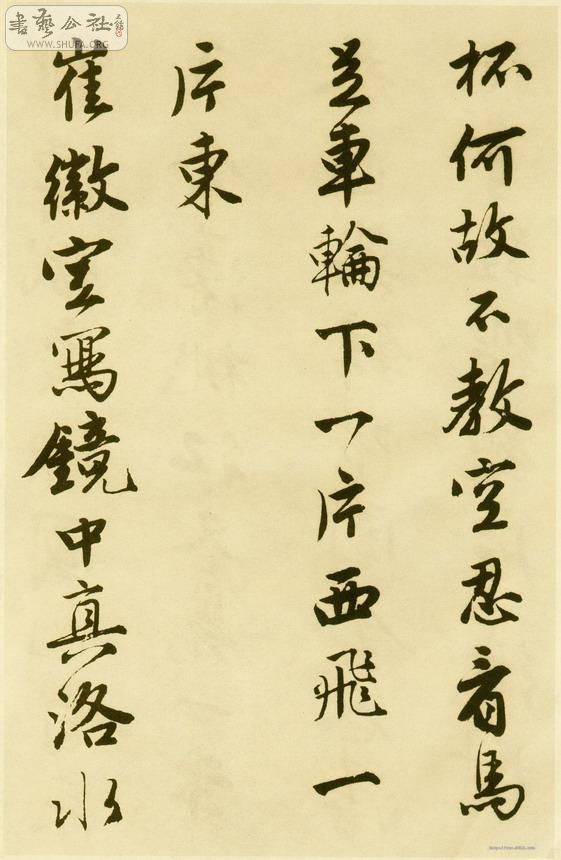 杯何故不教空忍看馬
足車輪下一片西飛一
片東
崔徽空寫鏡中真洛水
書藝公社
WWW.SHUFA.ORG